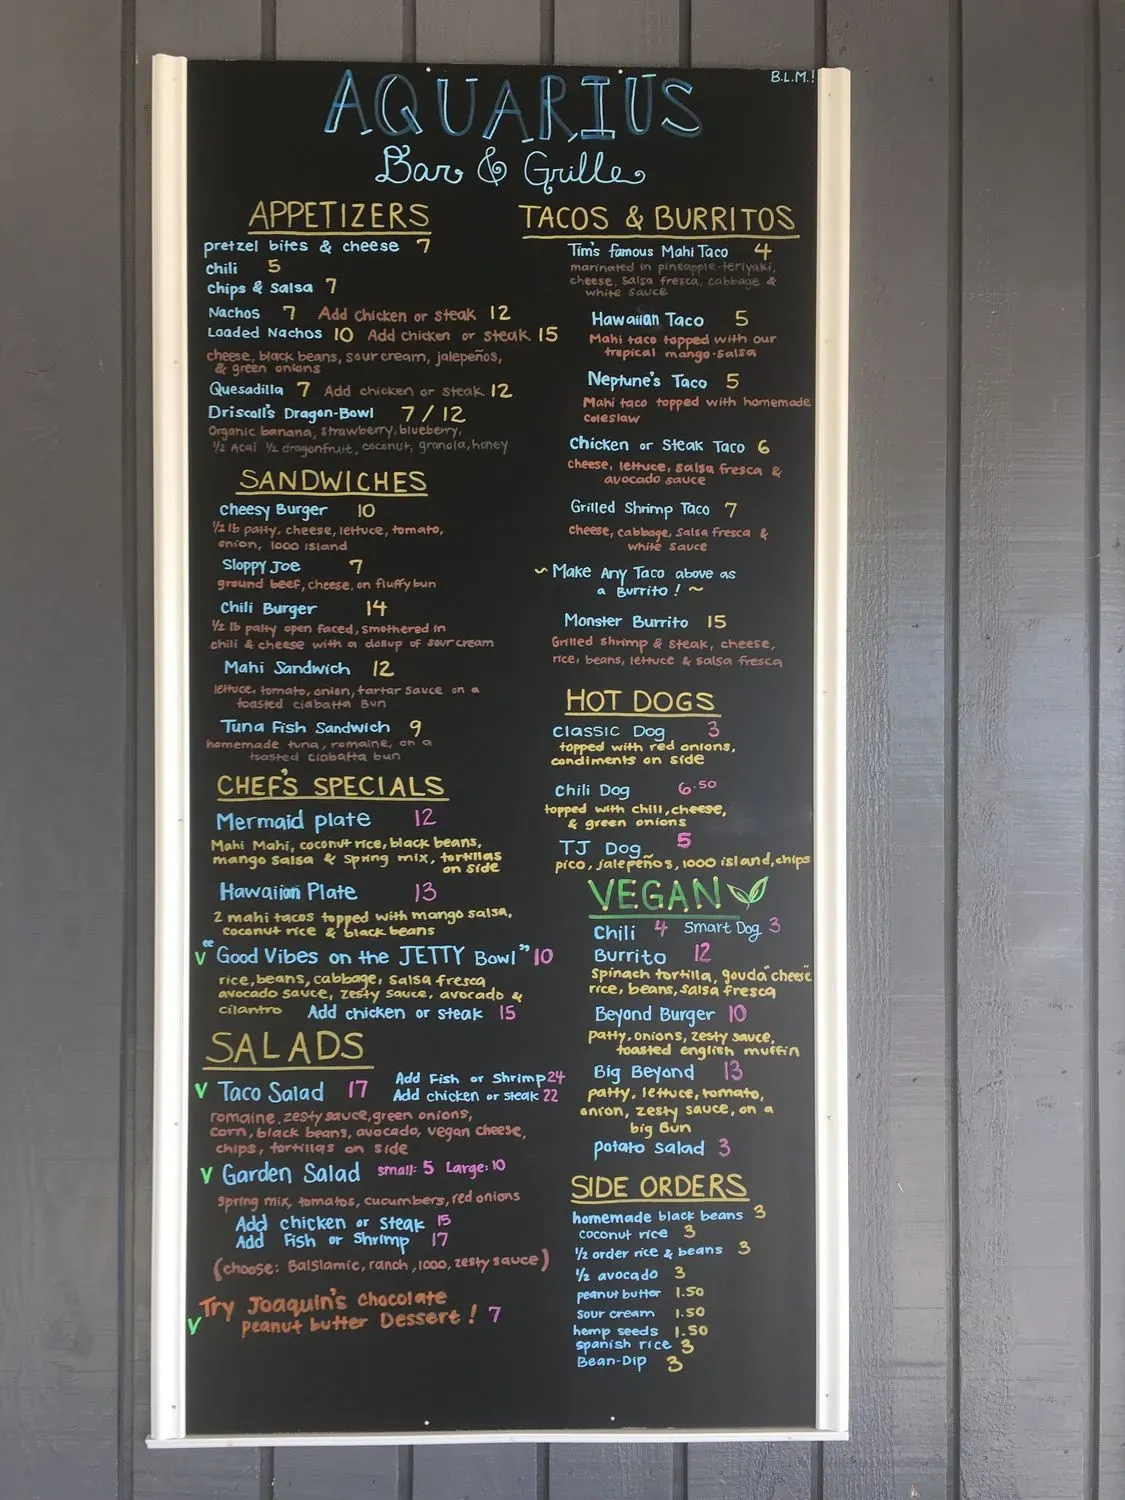 B.L.M.!
AQUARIUS
Bar & Grille
APPETIZERS
pretzel bites & cheese 7
chili 5
chips & salsa 7
Nachos 7 Add chicken or steak 12
Loaded Nachos 10 Add chicken or steak 15
cheese, black beans, sour cream, jalepeños,
& green onions
Quesadilla 7 Add chicken or steak 12
Driscoll's Dragon-Bowl 7/12
Organic banana, strawberry, blueberry,
1/2 Acai 1/2 dragonfruit, coconut, granola, honey
SANDWICHES
Cheesy Burger 10
1/2 lb patty, cheese, lettuce, tomato,
onion, 1000 island
Sloppy Joe 7
ground beef, cheese, on fluffy bun
Chili Burger 14
1/2 lb patty open faced, smothered in
chili & cheese with a dollup of sour cream
Mahi Sandwich 12
lettuce, tomato, onion, tartar sauce on a
toasted ciabatta bun
Tuna Fish Sandwich 9
homemade tuna, romaine, on a
toasted ciabatta bun
CHEF'S SPECIALS
Mermaid plate 12
Mahi Mahi, coconut rice, black beans,
mango salsa & spring mix, tortillas
on side
Hawaiian Plate 13
2 mahi tacos topped with mango salsa,
coconut rice & black beans
V "Good Vibes on the JETTY Bowl" 10
rice, beans, cabbage, salsa fresca
avocado sauce, zesty sauce, avocado &
cilantro Add chicken or steak 15
SALADS
V Taco Salad 17 Add Fish or Shrimp 24
Add chicken or steak 22
romaine, zesty sauce, green onions,
corn, black beans, avocado, vegan cheese,
chips, tortillas on side
V Garden Salad small: 5 Large: 10
Spring mix, tomatos, cucumbers, red onions
Add chicken or steak 15
Add Fish or Shrimp 17
(choose: Balslamic, ranch, 1000, zesty sauce)
Try Joaquin's chocolate
V peanut butter Dessert! 7
TACOS & BURRITOS
Tim's famous Mahi Taco 4
marinated in pineapple-teriyaki,
cheese, salsa fresca, cabbage &
white sauce
Hawaiian Taco 5
Mahi taco topped with our
tropical mango-salsa
Neptune's Taco 5
Mahi taco topped with homemade
coleslaw
Chicken or Steak Taco 6
cheese, lettuce, salsa fresca &
avocado sauce
Grilled Shrimp Taco 7
cheese, cabbage, salsa fresca &
white sauce
~ Make Any Taco above as
a Burrito! ~
Monster Burrito 15
Grilled shrimp & steak, cheese,
rice, beans, lettuce & salsa fresca
HOT DOGS
Classic Dog 3
topped with red onions,
condiments on side
Chili Dog 6.50
topped with chili, cheese,
& green onions
TJ Dog 5
pico, jalepeños, 1000 island, chips
VEGAN
Chili 4 Smart Dog 3
Burrito 12
spinach tortilla, gouda "cheese"
rice, beans, salsa fresca
Beyond Burger 10
patty, onions, zesty sauce,
toasted english muffin
Big Beyond 13
patty, lettuce, tomato,
onion, zesty sauce, on a
big Bun
potato salad 3
SIDE ORDERS
homemade black beans 3
coconut rice 3
1/2 order rice & beans 3
1/2 avocado 3
peanut butter 1.50
sour cream 1.50
hemp seeds 1.50
spanish rice 3
Bean-Dip 3